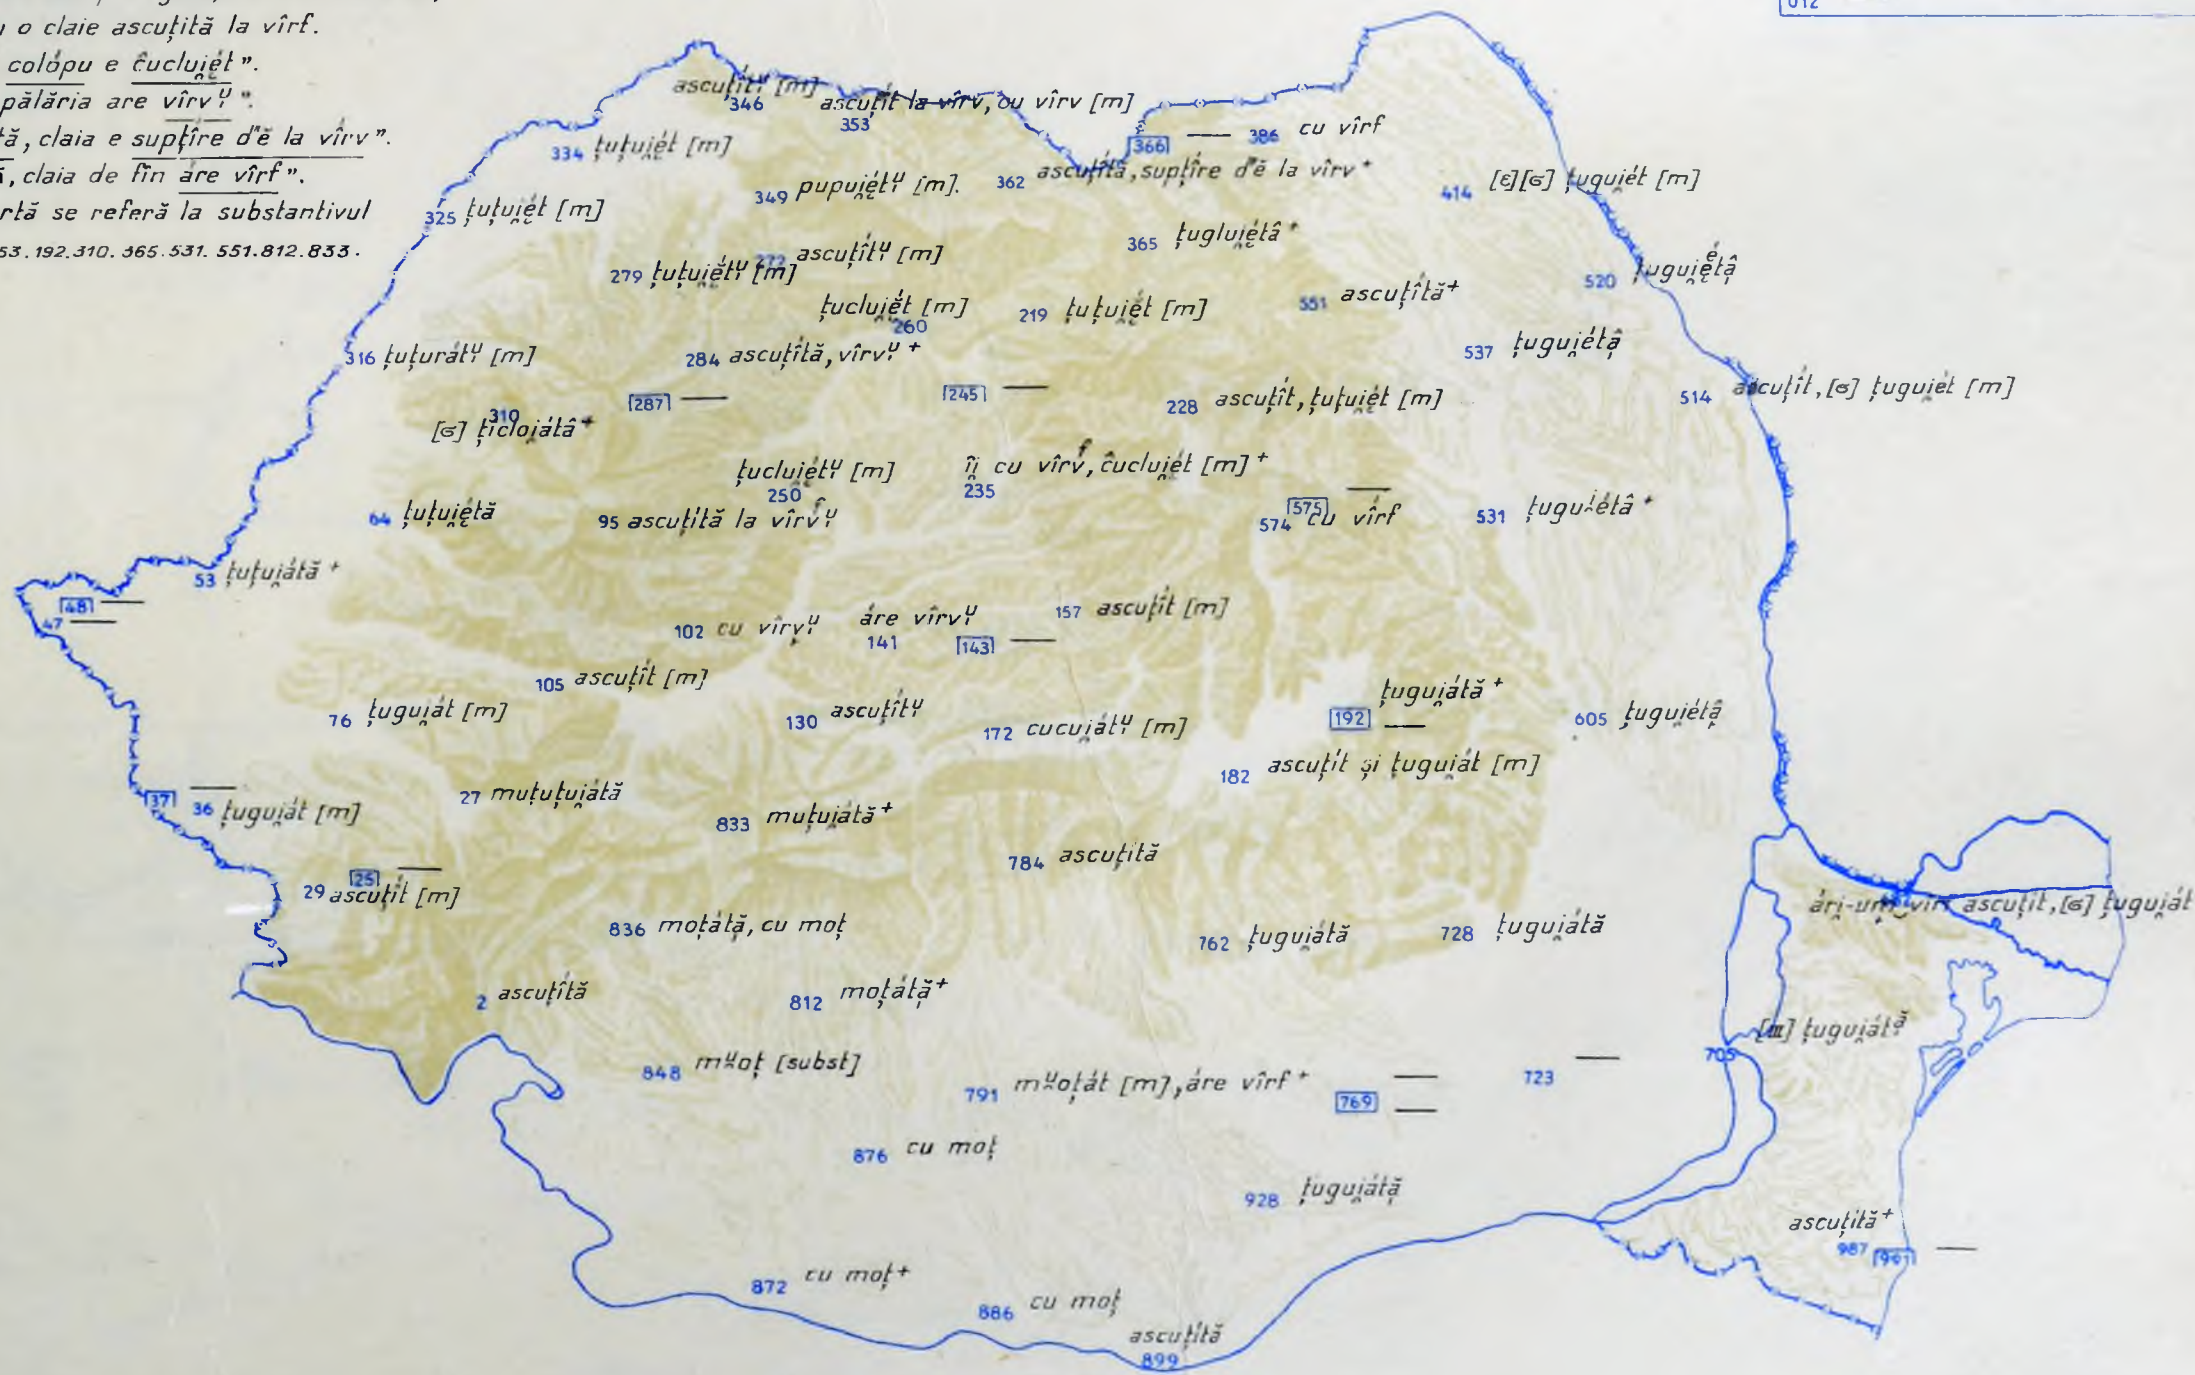 o claie ascuțită la vîrf.
012
colópu e ĉuclui̯ét”.
pălăria are vîrvᶙ”.
claia e supțîre d'ĕ la vîrv”.
claia de fîn áre vîrf”.
se referă la substantivul
53.192.310.365.531.551.812.833.
ascuțîtᶙ [m]
346
ascuțît la vîrv, cu vîrv [m]
353
366 — 386 cu vîrf
334 țuțui̯ét [m]
349 pupui̯étᶙ [m].
362 ascuțîtă, supțîre d'ĕ la vîrv +
414 [ɛ][ɞ] țugui̯ét [m]
325 țuțui̯ét [m]
365 țuglui̯étâ +
272 ascuțîtᶙ [m]
279 țuțui̯étᶙ [m]
520 țugui̯étă̭
țuclui̯ét [m]
260
219 țuțui̯ét [m]
551 ascuțîtă +
316 țuțurátᶙ [m]
284 ascuțîtă, vîrvᶙ +
537 țugui̯étă̭
287 —
245 —
228 ascuțît, țuțui̯ét [m]
514 ascuțît, [ɞ] țugui̯ét [m]
310
[ɞ] țicloi̯átâ +
țuclui̯étᶙ [m]
250
îi̯ cu vîrv, ĉuclui̯ét [m] +
235
64 țuțui̯étă
95 ascuțîtă la vîrvᶙ
575 —
574 cu vîrf
531 țugui̯étâ +
53 țuțui̯átă +
48 —
47 —
102 cu vîrvᶙ
áre vîrvᶙ
141
143 —
157 ascuțît [m]
105 ascuțît [m]
76 țugui̯át [m]
130 ascuțîtᶙ
172 cucui̯átᶙ [m]
țugui̯átă +
192 —
605 țugui̯étă̭
182 ascuțít și țugui̯át [m]
37 —
36 țugui̯át [m]
27 muțuțui̯átă
833 muțui̯átă +
784 ascuțítă
25 —
29 ascuțît [m]
836 moțátă̭, cu moț
762 țugui̯átă
728 țugui̯átă
ári̯-un vîrf ascuțít, [ɞ] țugui̯át
+
2 ascuțîtă
812 moțátă̭ +
[III] țugui̯átă
705
848 mᶙoț [subst]
791 mᶙoțát [m], áre vîrf +
—
769 —
723 —
876 cu moț
928 țugui̯átă̭
ascuțítă +
987 961 —
872 cu moț +
886 cu moț
ascuțítă
899